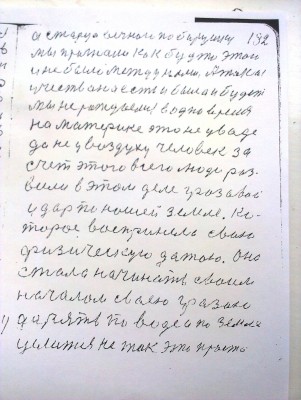 а старца вечной побарушки 192
мы признали как будто этой
и не было между нами. А такая
учества на есть и была и будет
мы не
на материке это не у вас
да не у воздуху человек за
счет этого всего люди раз-
вили в этом деле грозавой
удар по нашей земле, ко-
торое восприняла сваю
физическую датою. Она
стала начинать своим
началом сваею грозаю
дарять по воде и по земли
целится не так это просто